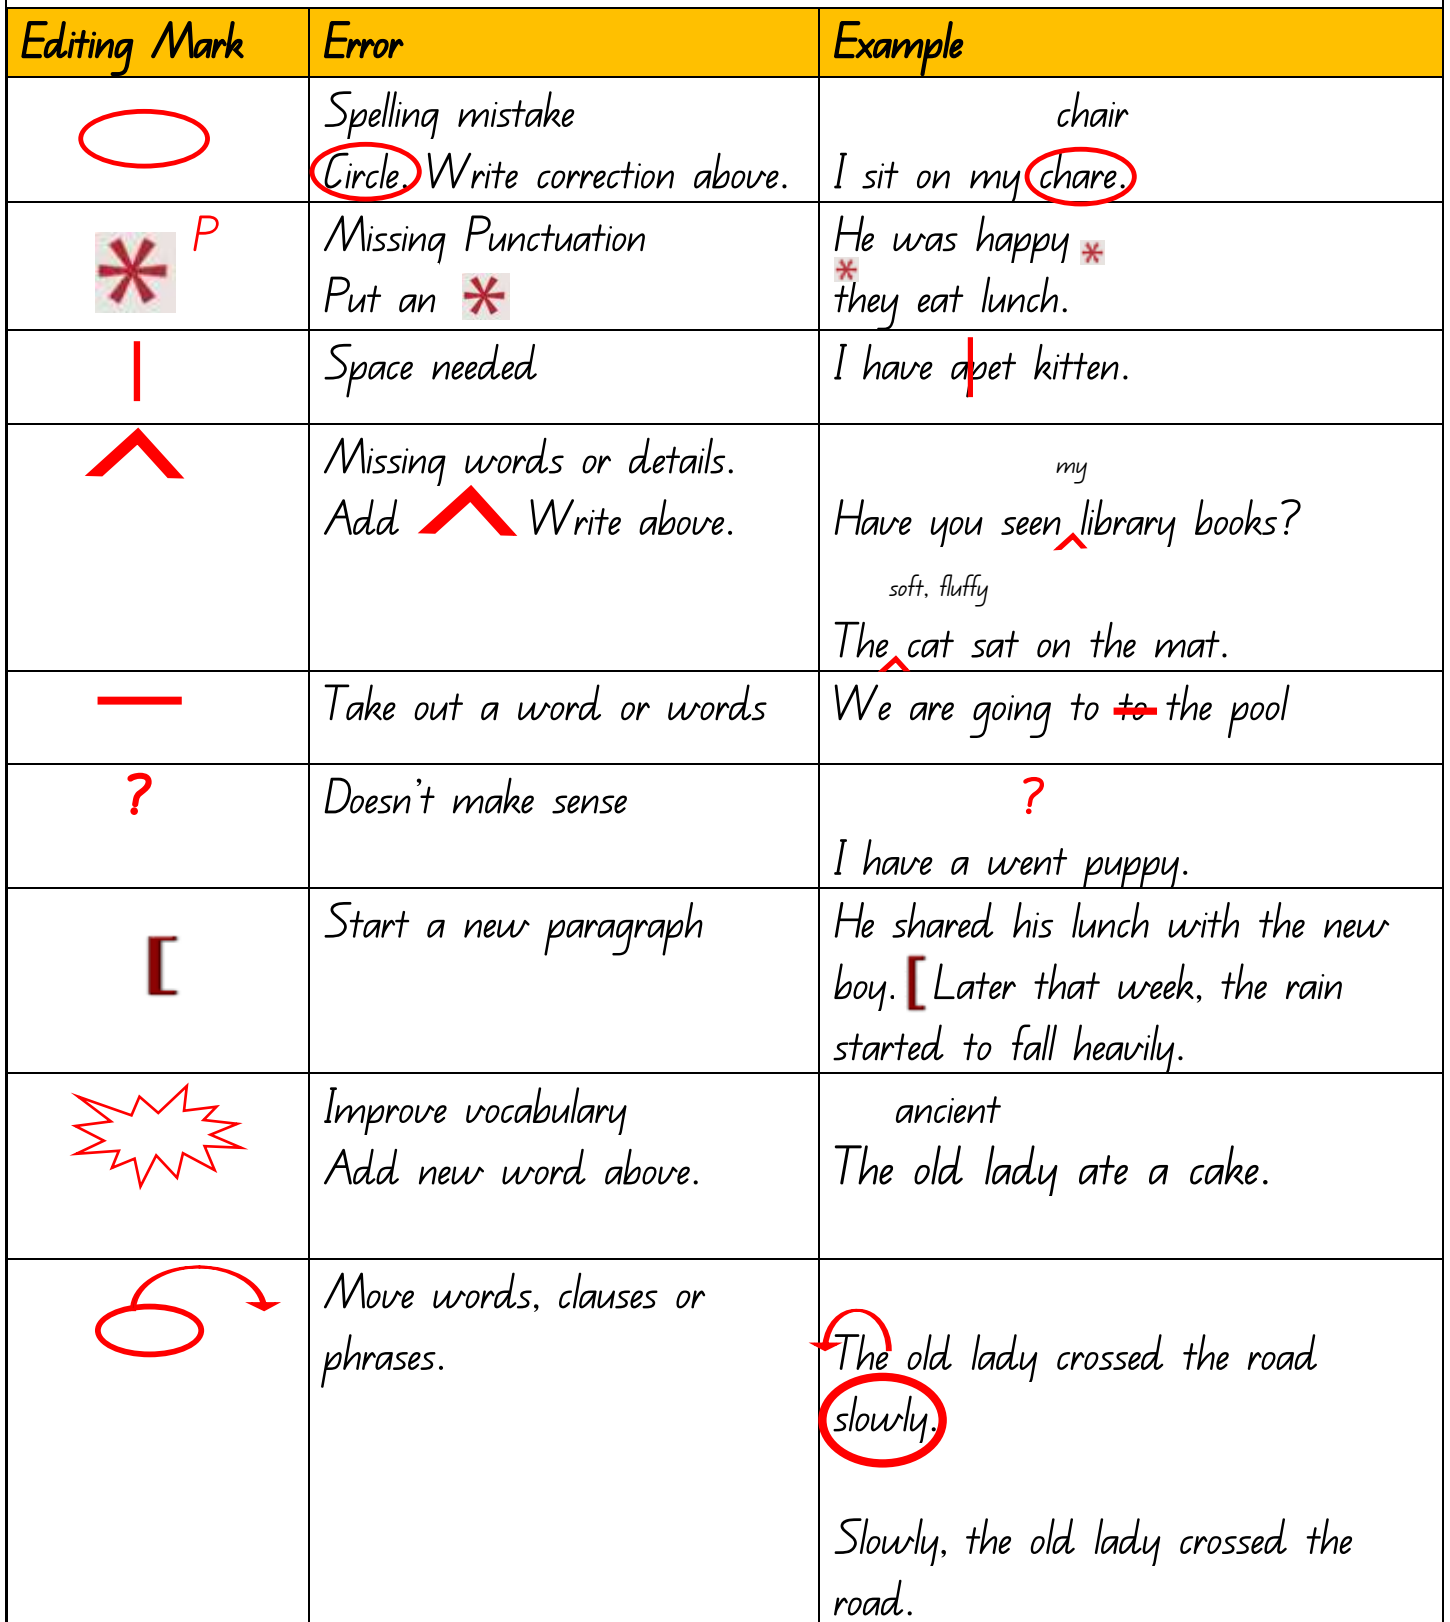 Editing Mark Error Example
Spelling mistake
Circle. Write correction above.
chair
I sit on my chare.
P
Missing Punctuation
Put an *
He was happy *
*
they eat lunch.
Space needed
I have apet kitten.
Missing words or details.
Add Write above.
my
Have you seen library books?
soft, fluffy
The cat sat on the mat.
Take out a word or words
We are going to to the pool
?
Doesn't make sense
?
I have a went puppy.
[
Start a new paragraph
He shared his lunch with the new
boy. [ Later that week, the rain
started to fall heavily.
Improve vocabulary
Add new word above.
ancient
The old lady ate a cake.
Move words, clauses or
phrases.
The old lady crossed the road
slowly.
Slowly, the old lady crossed the
road.